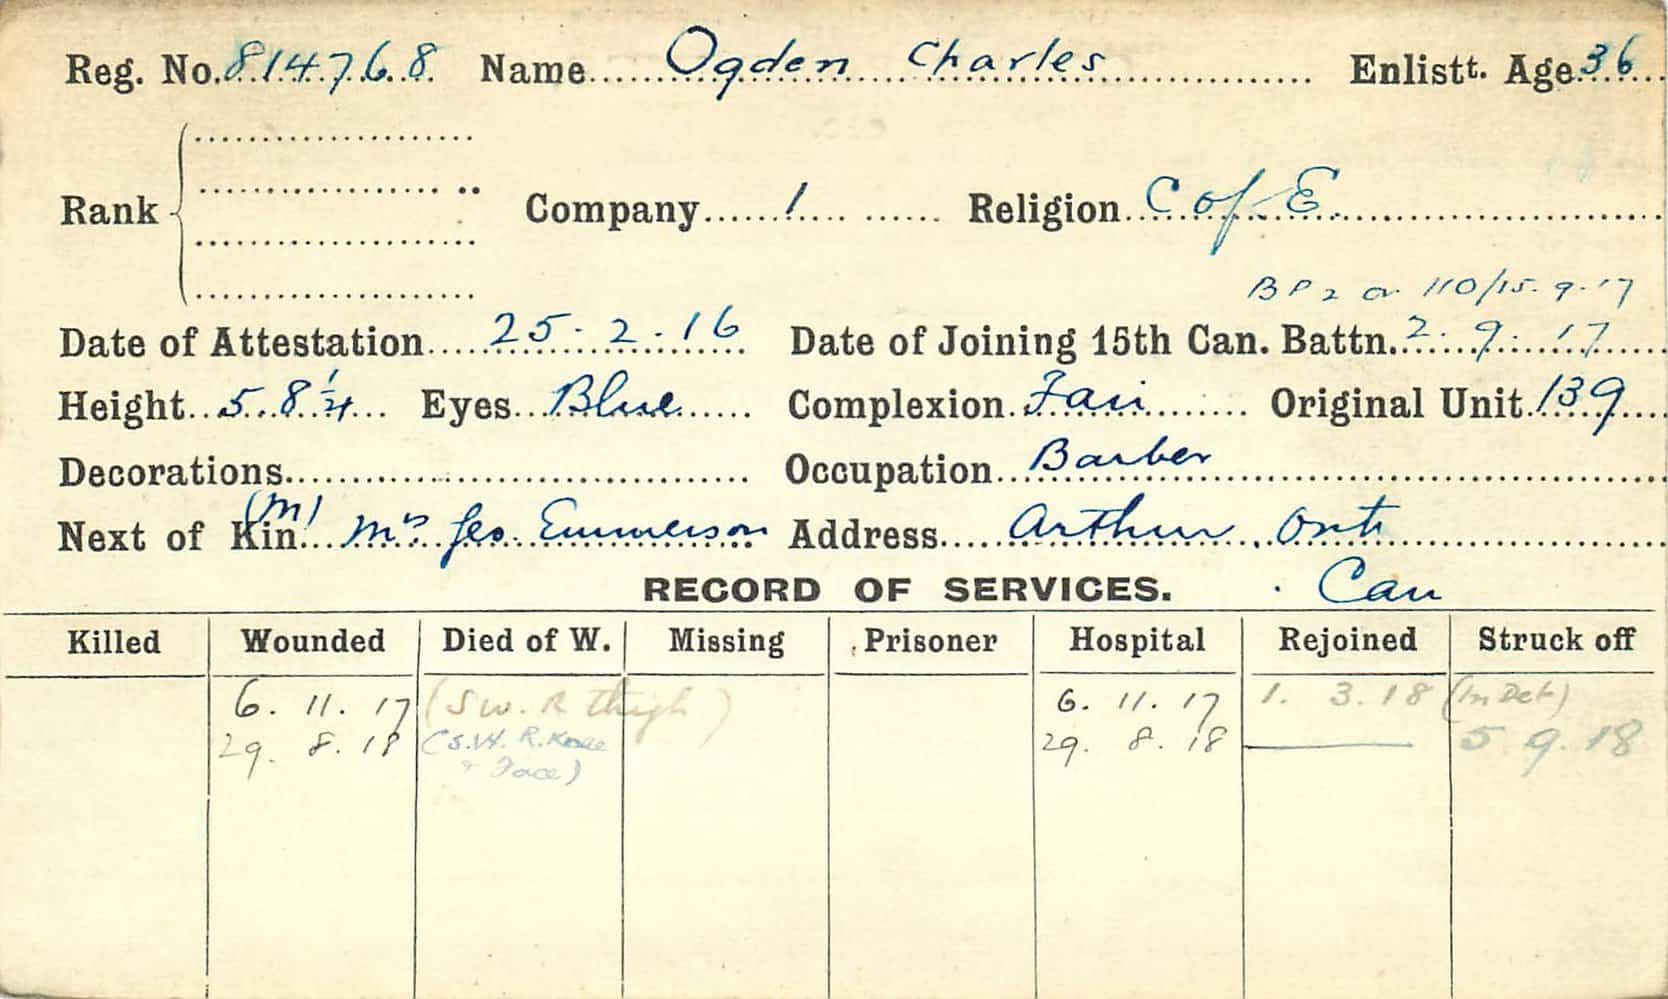 Reg. No. 814768 Name Ogden Charles Enlistt. Age 36
Rank Company 1 Religion C of E
BP2 or 110/15.9.17
Date of Attestation 25-2-16 Date of Joining 15th Can. Battn. 2.9.17
Height 5.8 1/4 Eyes Blue Complexion Fair Original Unit 139
Decorations Occupation Barber
Next of Kin (M) Mrs Geo. Emmerson Address Arthur Ont
RECORD OF SERVICES. Can
Killed Wounded Died of W. Missing Prisoner Hospital Rejoined Struck off
6. 11. 17 (SW. R thigh) 6. 11. 17 1. 3. 18 (In Det)
29. 8. 18 (S.W. R. Knee 29. 8. 18 5 9. 18
+ Face)